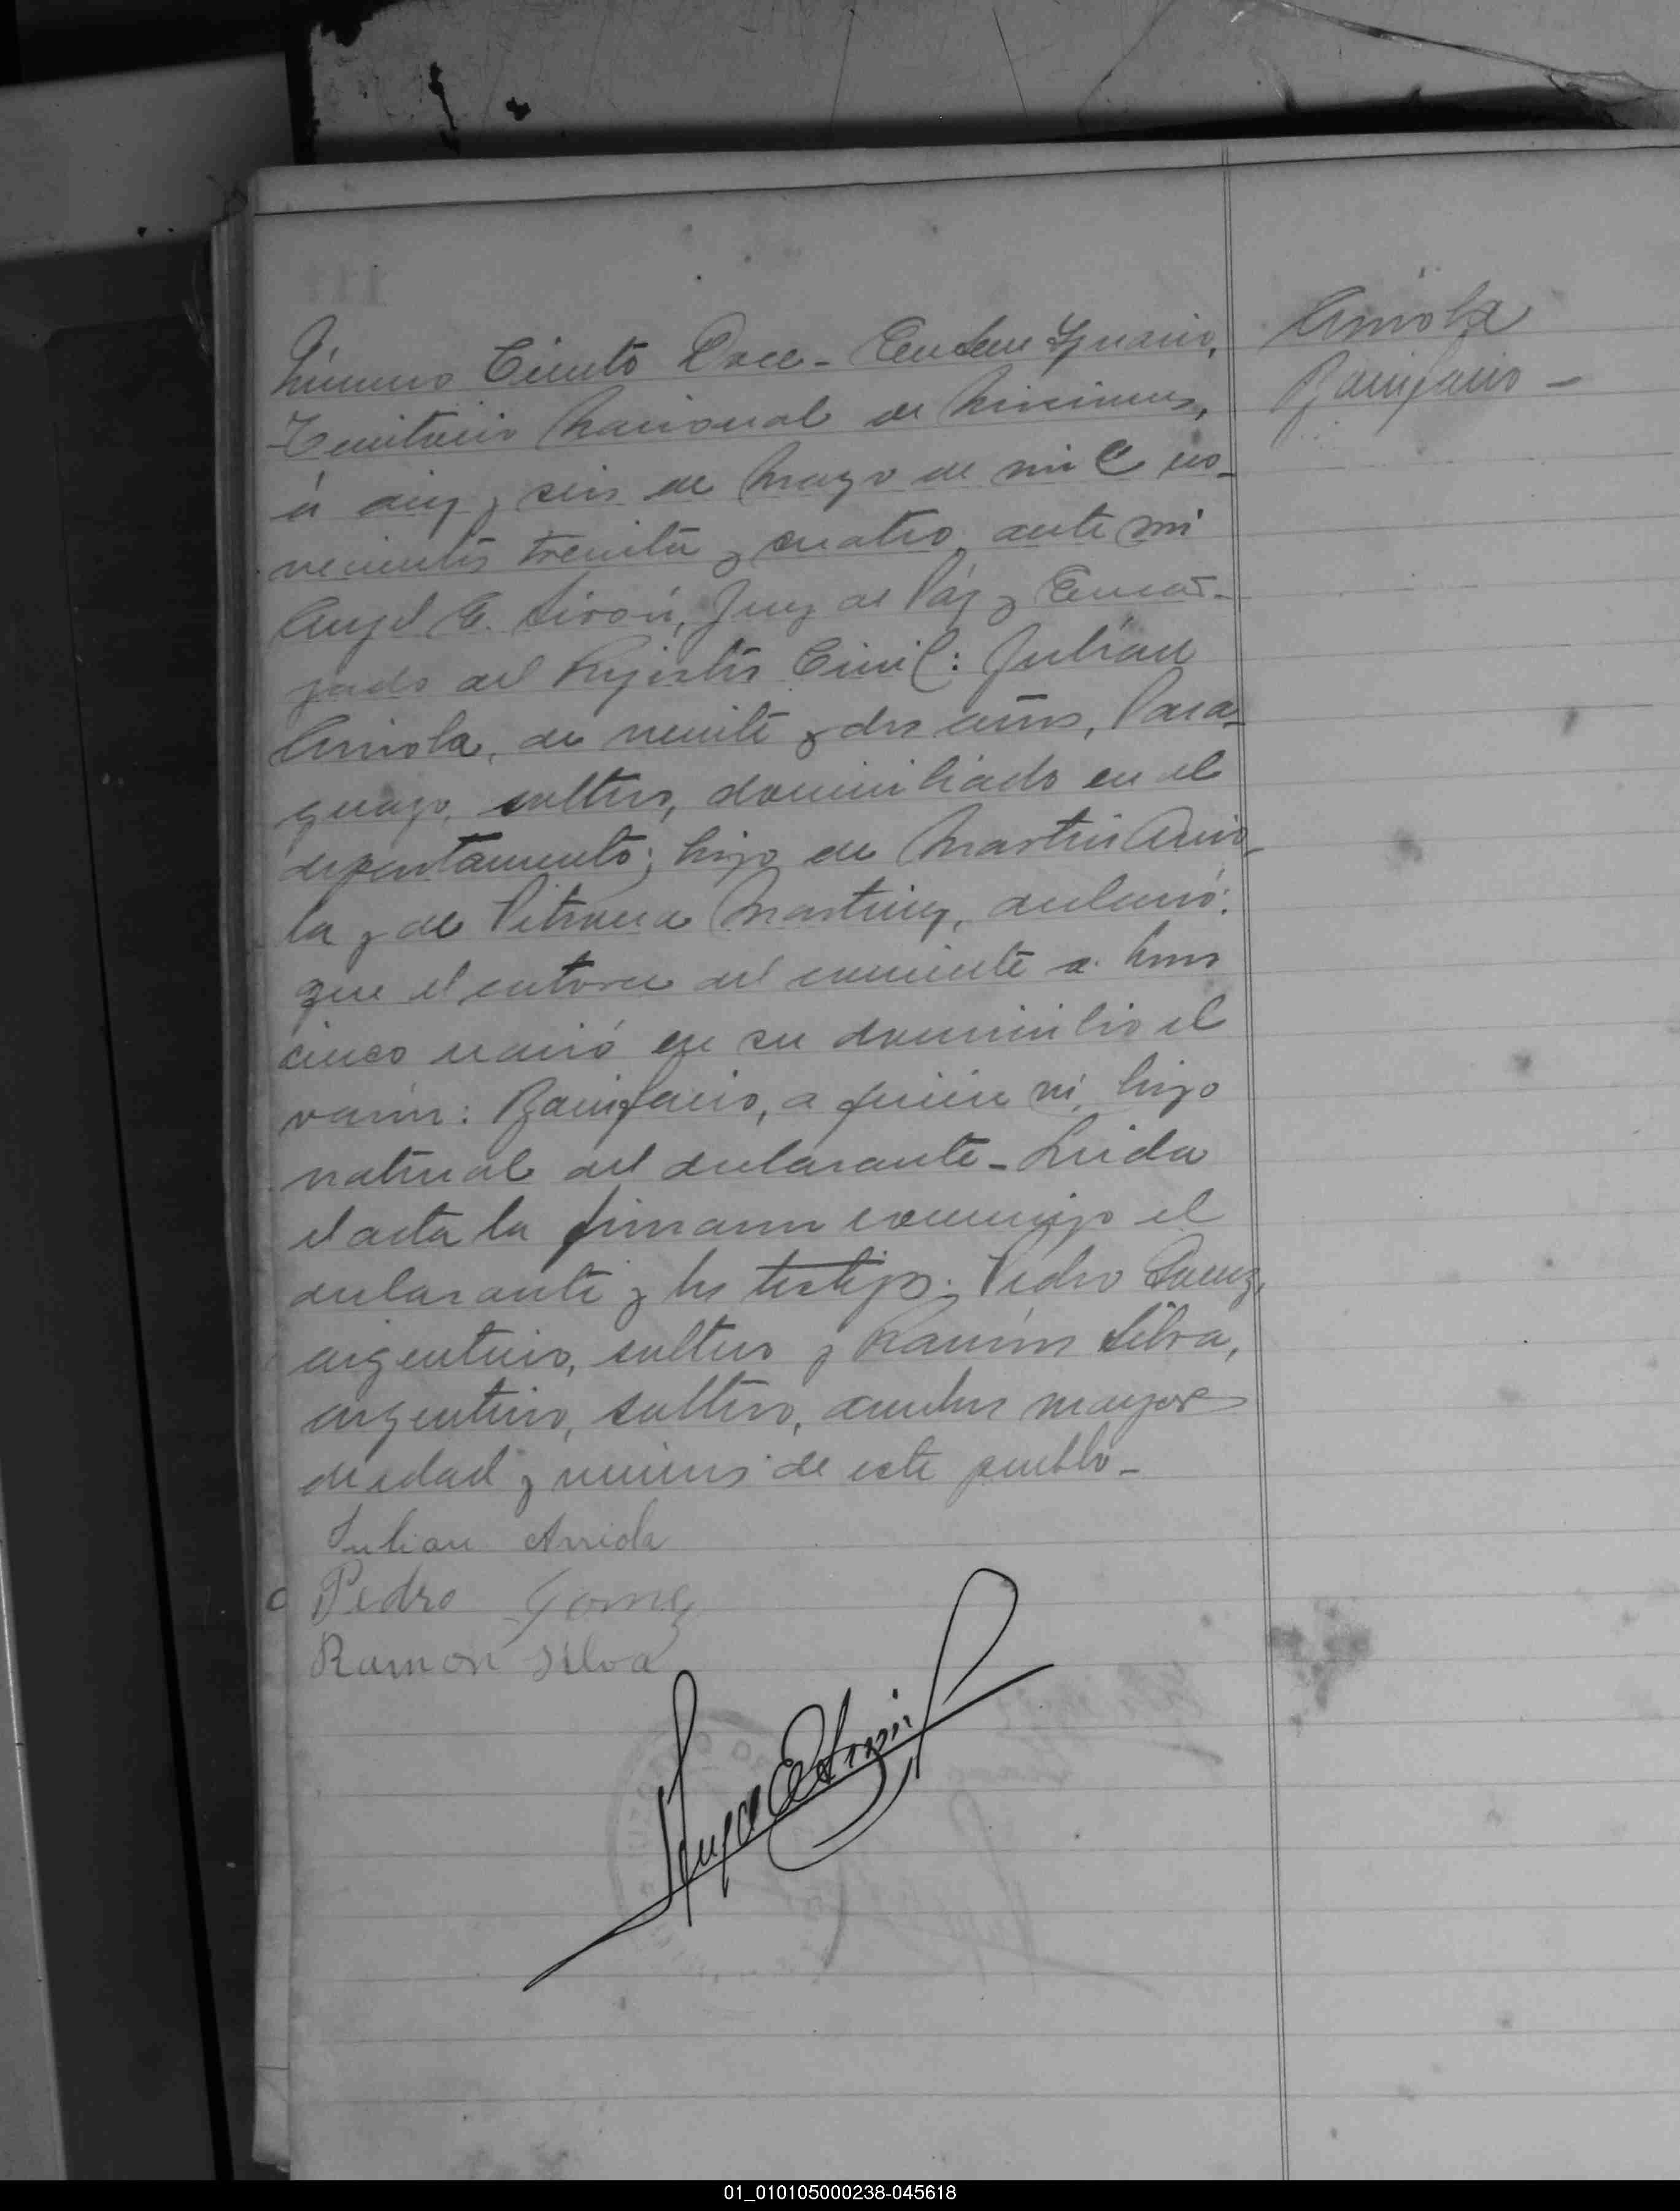 Arriola
Bonifacio -
Número Ciento Doce - En San Ignacio,
Territorio Nacional de Misiones,
á diez y seis de Mayo de mil no-
vecientos treinta y cuatro, ante mi
Angel E. Sirón, Juez de Páz y Encar-
gado del Registro Civil: Julián
Arriola, de veinte y dos años, Para-
guayo, soltero, domiciliado en el
departamento; hijo de Martin Arrio-
la y de Petrona Martinez, declaró:
que el catorce del corriente a horas
cinco nació en su domicilio el
varón: Bonifacio, a quien vi, hijo
natural del declarante - Leida
el acta la firmaron conmigo el
declarante y los testigos: Pedro Gomez,
argentino, soltero y Ramón Silva,
argentino, soltero, ambos mayores
de edad y vecinos de este pueblo -
Julian Arriola
Pedro Gomez
Ramon Silva
01_010105000238-045618